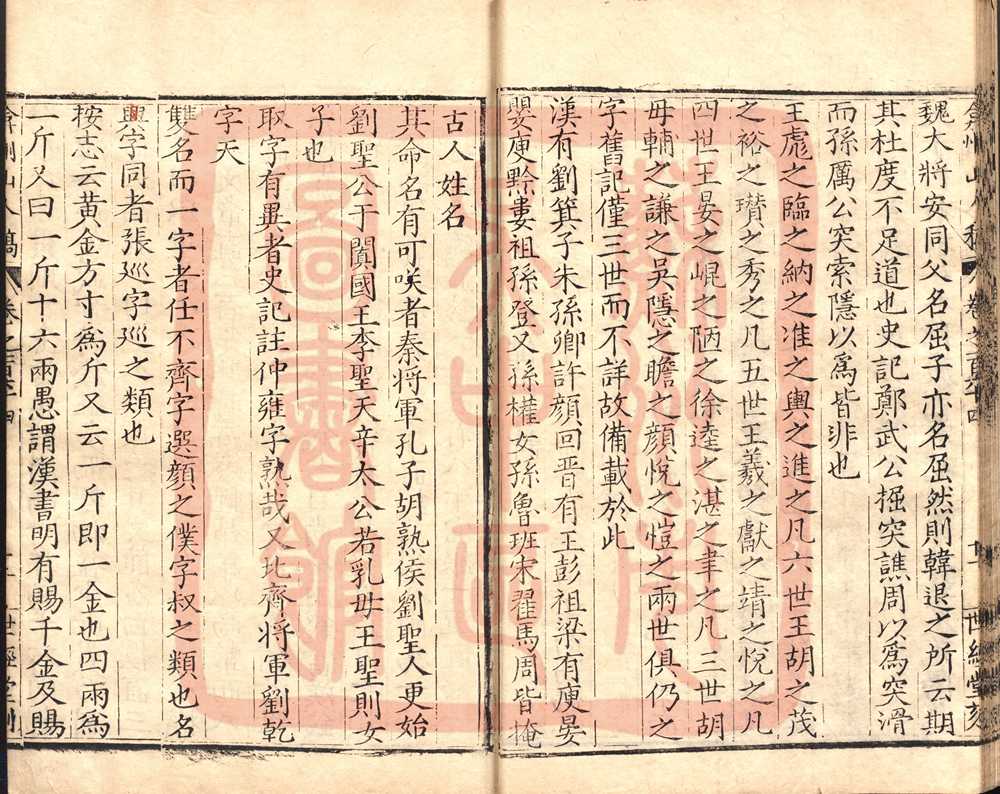 世經堂刻
魏大將安同父名屈子亦名屈然則韓退之所云期
其杜度不足道也史記鄭武公掘突譙周以爲突滑
而孫厲公突索隱以爲皆非也
王彪之臨之納之准之輿之進之凡六世王胡之茂
之裕之瓚之秀之凡五世王羲之獻之靖之悅之凡
四世王晏之崐之陋之徐逵之湛之聿之凡三世胡
毋輔之謙之吳隱之瞻之顏悅之愷之兩世俱仍之
字舊記僅三世而不詳故備載於此
漢有劉箕子朱孫卿許顏回晉有王彭祖梁有庾晏
嬰庾黔婁祖孫登又孫權女孫魯班宋翟馬周皆掩
古人姓名
其命名有可咲者秦將軍孔子胡熟侯劉聖人更始
劉聖公于闐國王李聖天辛太公若乳毋王聖則女
子也
取字有異者史記註仲雍字熟哉又北齊將軍劉乾
字天
雙名而一字者任不齊字選顏之僕字叔之類也名
與字同者張巡字巡之類也
按志云黃金方寸爲斤又云一斤即一金也四兩爲
一斤又曰一斤十六兩愚謂漢書明有賜千金及賜